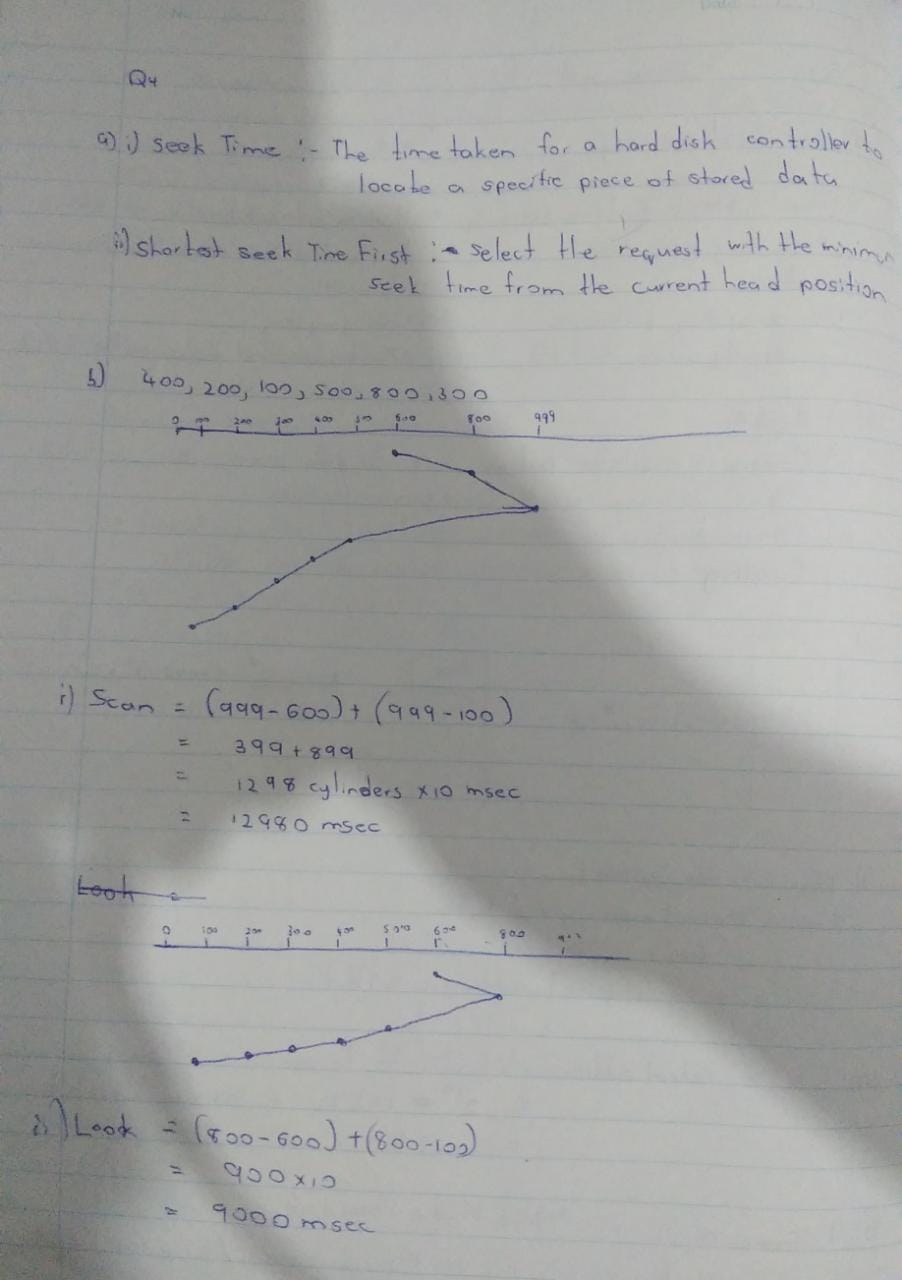 Q4
a) i) Seek Time :- The time taken for a hard disk controller to
locate a specific piece of stored data
ii) Shortest seek Time First :- select the request with the minimum
seek time from the current head position
b) 400, 200, 100, 500, 800, 300
0 100 200 300 400 500 600 800 999
i) Scan = (999-600) + (999-100)
= 399 + 899
= 1298 cylinders x10 msec
= 12980 msec
Look =
0 100 200 300 400 500 600 800
ii) Look = (800-600) + (800-100)
= 900 x 10
= 9000 msec